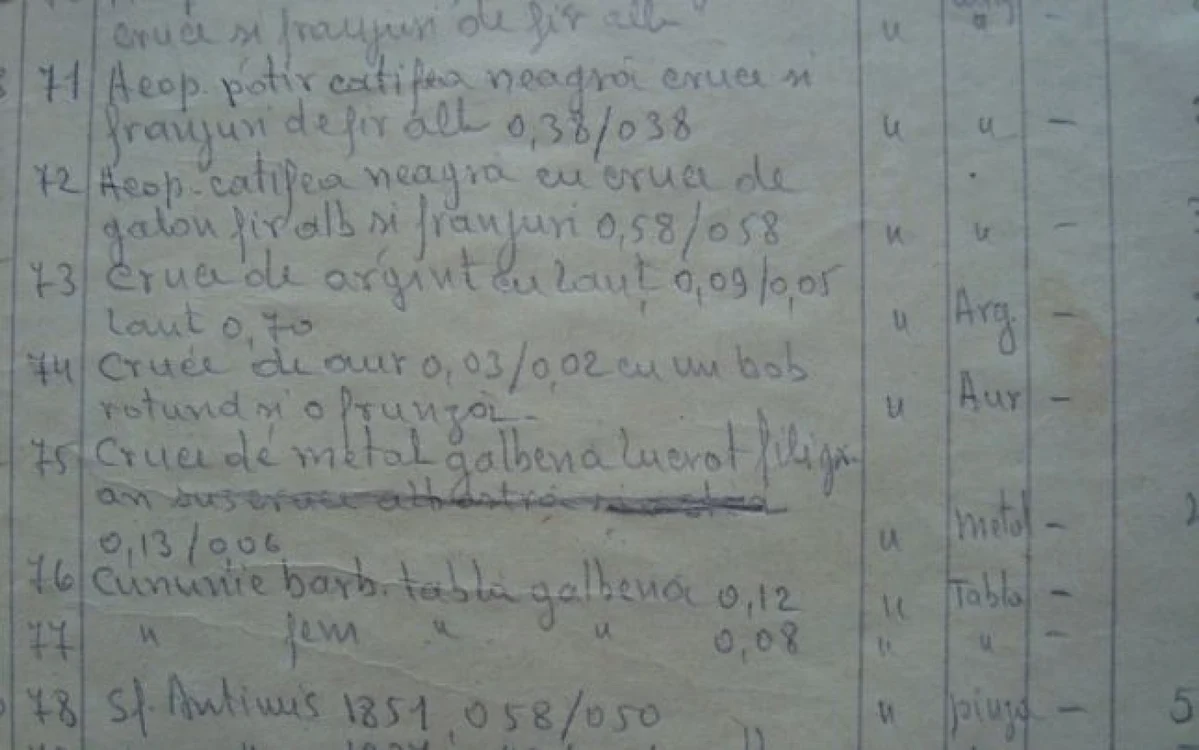 cruce si franjuri de fir alb " "
71 Acop. potir catifea neagră cruce si
franjuri de fir alb 0,38/038 " " -
72 Acop. catifea neagra cu cruce de
galon fir alb si franjuri 0,58/058 " " -
73 Cruce de argint cu lanț 0,09/0,05
lanț 0,70 " Arg. -
74 Cruce de aur 0,03/0,02 cu un bob
rotund si o frunză - " Aur -
75 Cruce de metal galbenă lucrat filigr-
an
0,13/006 " metal -
76 Cununie barb. tablă galbenă 0,12 " Tablă -
77 " fem " " 0,08 " " -
78 Sf. Antimis 1851, 058/050 " pînză - 5